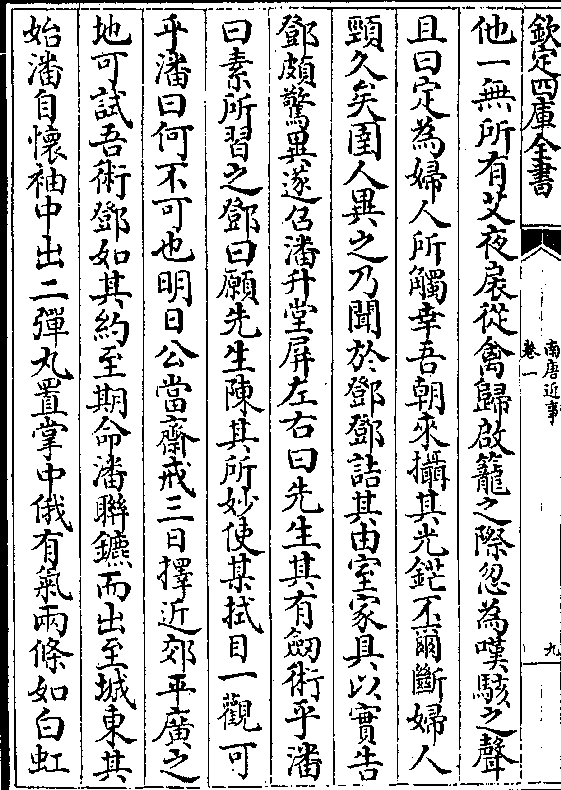 欽定四庫全書
南唐近事
卷一
九
他一無所有艾夜扆從禽歸啟籠之際忽為嘆駭之聲
且曰定為婦人所觸幸吾朝來攝其光鋩不爾斷婦人
頸久矣圉人異之乃聞於鄧鄧詰其由室家具以實告
鄧頗驚異遂召潘升堂屏左右曰先生其有劒術乎潘
曰素所習之鄧曰願先生陳其所妙使某拭目一觀可
乎潘曰何不可也明日公當齋戒三日擇近郊平廣之
地可試吾術鄧如其約至期命潘聯鑣而出至城東其
始潘自懷袖中出二彈丸置掌中俄有氣兩條如白虹